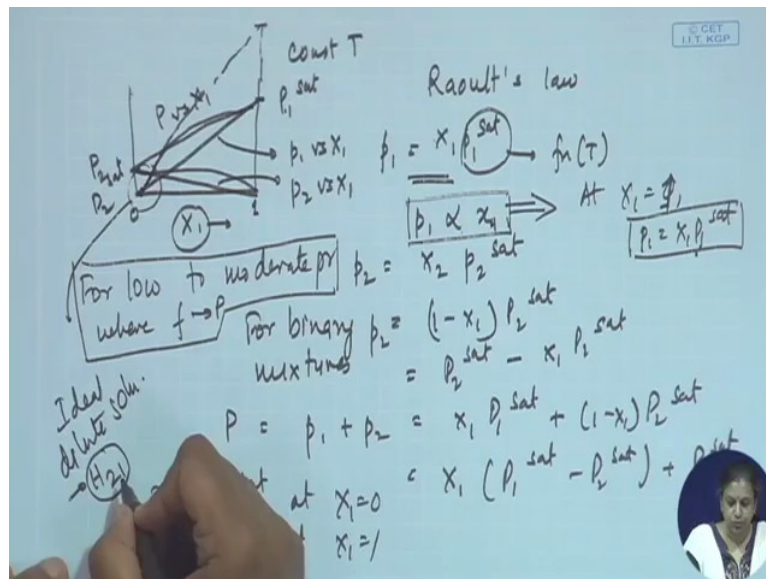 © CET
I.I.T. KGP
const T
Raoult's law
P vs x₁
P₁ sat
p₁ = x₁ p₁ sat → fn (T)
P₂ sat
p₁ vs x₁
p₂ vs x₁
P₂
0
1
x₁ →
p₁ ∝ x₁ ⇒ At x₁ =
p₁ = x₁ p₁ sat
For low to moderate pr
where f → P
p₂ = x₂ p₂ sat
For binary mixtures
p₂ = (1 - x₁) P₂ sat
= P₂ sat - x₁ P₂ sat
Ideal dilute soln.
P = p₁ + p₂ = x₁ P₁ sat + (1-x₁) P₂ sat
= x₁ (P₁ sat - P₂ sat) +
→ H21
at x₁=0
x₁=1